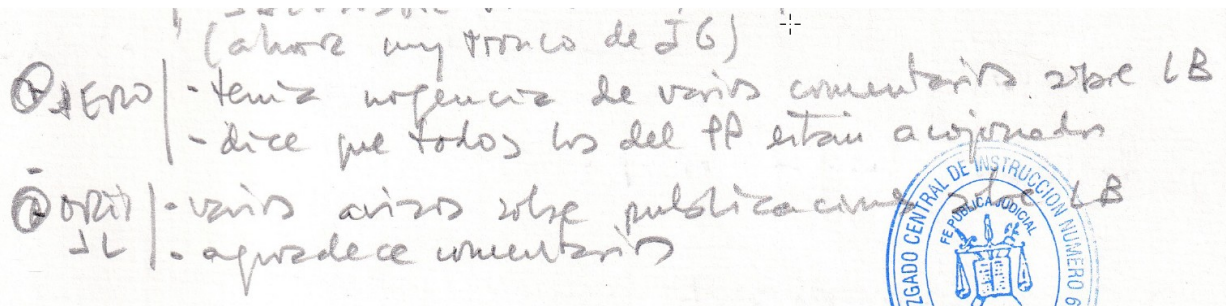 (ahora muy tronco de JG)
OJERO - tenía urgencia de varios comentarios sobre LB
- dice que todos los del PP están acojonados
- varios avisos sobre publicaciones sobre LB
JL - agradece comentarios
JUZGADO CENTRAL DE INSTRUCCION NUMERO 6
FE PÚBLICA JUDICIAL